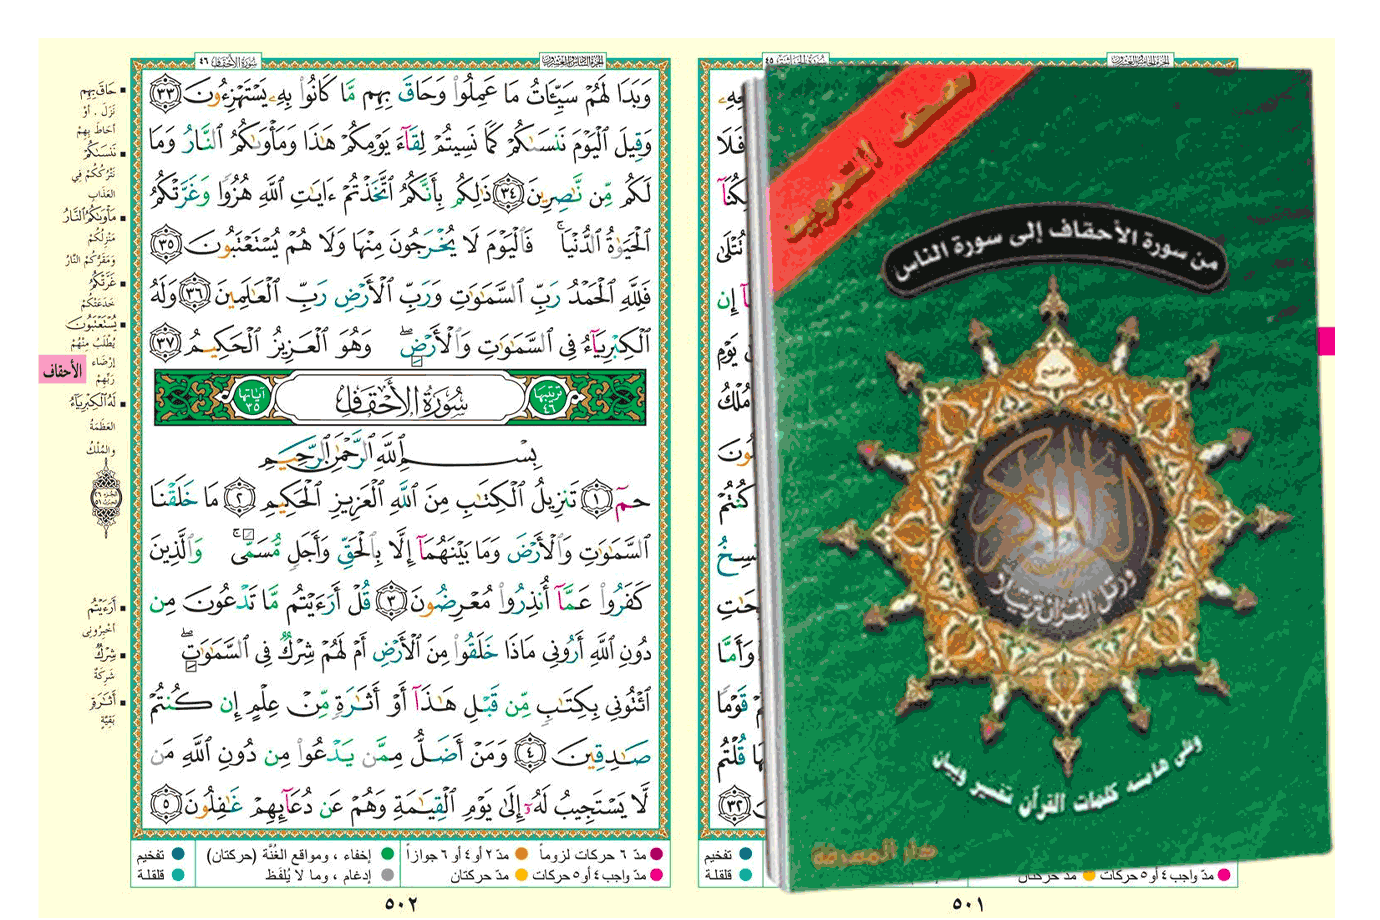 سُورَةُ الأَحْقَافِ ٤٦
الجزء السادس والعشرون
وَبَدَا لَهُمْ سَيِّـَٔاتُ مَا عَمِلُوا۟ وَحَاقَ بِهِم مَّا كَانُوا۟ بِهِۦ يَسْتَهْزِءُونَ ٣٣
وَقِيلَ ٱلْيَوْمَ نَنسَىٰكُمْ كَمَا نَسِيتُمْ لِقَآءَ يَوْمِكُمْ هَٰذَا وَمَأْوَىٰكُمُ ٱلنَّارُ وَمَا
لَكُم مِّن نَّـٰصِرِينَ ٣٤ ذَٰلِكُم بِأَنَّكُمُ ٱتَّخَذْتُمْ ءَايَـٰتِ ٱللَّهِ هُزُوًا وَغَرَّتْكُمُ
ٱلْحَيَوٰةُ ٱلدُّنْيَا ۚ فَٱلْيَوْمَ لَا يُخْرَجُونَ مِنْهَا وَلَا هُمْ يُسْتَعْتَبُونَ ٣٥
فَلِلَّهِ ٱلْحَمْدُ رَبِّ ٱلسَّمَـٰوَٰتِ وَرَبِّ ٱلْأَرْضِ رَبِّ ٱلْعَـٰلَمِينَ ٣٦ وَلَهُ
ٱلْكِبْرِيَآءُ فِى ٱلسَّمَـٰوَٰتِ وَٱلْأَرْضِ ۖ وَهُوَ ٱلْعَزِيزُ ٱلْحَكِيمُ ٣٧
ترتيبها ٤٦ سُورَةُ الأَحْقَافِ آياتها ٣٥
بِسْمِ ٱللَّهِ ٱلرَّحْمَـٰنِ ٱلرَّحِيمِ
حمٓ ١ تَنزِيلُ ٱلْكِتَـٰبِ مِنَ ٱللَّهِ ٱلْعَزِيزِ ٱلْحَكِيمِ ٢ مَا خَلَقْنَا
ٱلسَّمَـٰوَٰتِ وَٱلْأَرْضَ وَمَا بَيْنَهُمَآ إِلَّا بِٱلْحَقِّ وَأَجَلٍ مُّسَمًّى ۚ وَٱلَّذِينَ
كَفَرُوا۟ عَمَّآ أُنذِرُوا۟ مُعْرِضُونَ ٣ قُلْ أَرَءَيْتُم مَّا تَدْعُونَ مِن
دُونِ ٱللَّهِ أَرُونِى مَاذَا خَلَقُوا۟ مِنَ ٱلْأَرْضِ أَمْ لَهُمْ شِرْكٌ فِى ٱلسَّمَـٰوَٰتِ ۖ
ٱئْتُونِى بِكِتَـٰبٍ مِّن قَبْلِ هَـٰذَآ أَوْ أَثَـٰرَةٍ مِّنْ عِلْمٍ إِن كُنتُمْ
صَـٰدِقِينَ ٤ وَمَنْ أَضَلُّ مِمَّن يَدْعُوا۟ مِن دُونِ ٱللَّهِ مَن
لَّا يَسْتَجِيبُ لَهُۥٓ إِلَىٰ يَوْمِ ٱلْقِيَـٰمَةِ وَهُمْ عَن دُعَآئِهِمْ غَـٰفِلُونَ ٥
حَاقَ بِهِم
نَزَلَ . أَوْ
أَحَاطَ بِهِمْ
نَنسَىٰكُمْ
نَتْرُكُكُمْ فِي
العَذَابِ
مَأْوَىٰكُمُ النَّارُ
مَنْزِلُكُمْ
وَمَقَرُّكُمُ النَّارُ
غَرَّتْكُمُ
خَدَعَتْكُمْ
يُسْتَعْتَبُونَ
يُطْلَبُ مِنْهُمْ
إِرْضَاءُ
رَبِّهِمْ
لَهُ الْكِبْرِيَآءُ
العَظَمَةُ
والمُلْكُ
أَرَءَيْتُم
أَخْبِرُونِي
شِرْكٌ
شَرِكَةٌ
أَثَـٰرَةٍ
بَقِيَّةٍ
الأحقاف
مدّ ٦ حركات لزوماً
مدّ ٢ أو ٤ أو ٦ جوازاً
إخفاء ، ومواقع الغُنَّة (حركتان)
تفخيم
مدّ واجب ٤ أو ٥ حركات
مدّ حركتان
إدغام ، وما لا يُلفَظ
قلقلة
٥٠٢
فَلَا
إِن
يَوْمِ
كُنتُمْ
وَأَمَّا
قَوْمًا
قُلْتُم
٣٢
تفخيم
قلقلة
مدّ واجب ٤ أو ٥ حركات
مدّ حركتان
٥٠١
من سورة الأحقاف إلى سورة الناس
القرآن الكريم
ورتل القرآن ترتيلا
وعلى هامشه كلمات القرآن تفسير وبيان
دار المعرفة